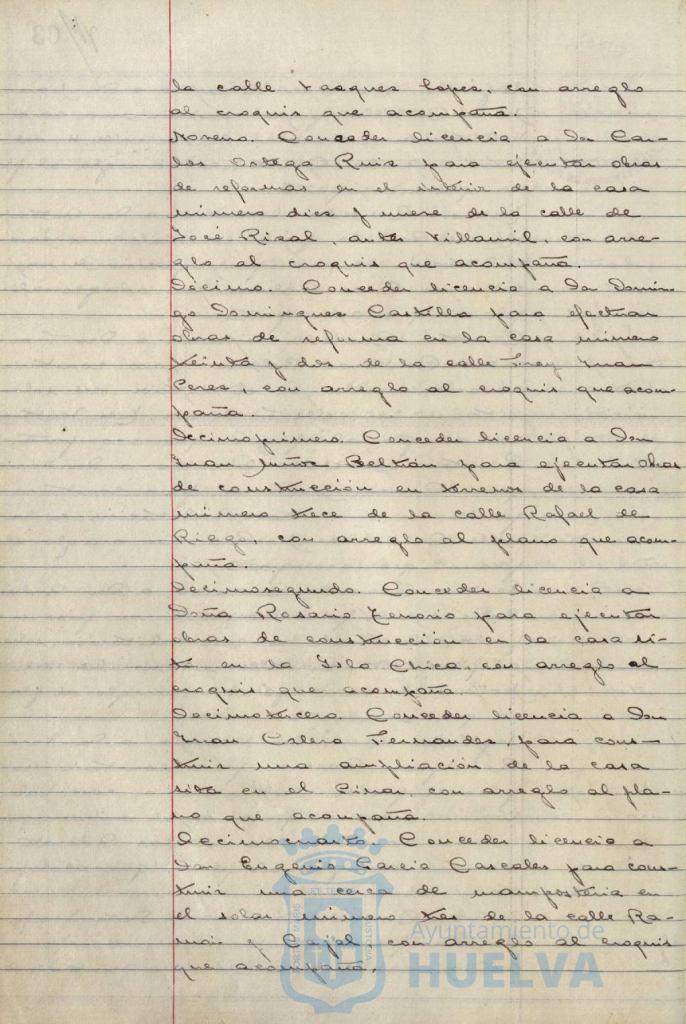 la calle Vasques Lopes, con arreglo
al croquis que acompaña.
Noveno. Conceder licencia a Don Car-
los Ortega Ruiz para ejecutar obras
de reformas en el interior de la casa
número dies y nueve de la calle de
José Risal, antes Villamil, con arre-
glo al croquis que acompaña.
Décimo. Conceder licencia a Don Domin-
go Domingues Castilla para efectuar
obras de reforma en la casa número
treinta y dos de la calle Frey Juan
Peres, con arreglo al croquis que acom-
paña.
Decimoprimero. Conceder licencia a Don
Juan Beltrán para ejecutar obras
de construcción en terrenos de la casa
número trece de la calle Rafael de
Riego, con arreglo al plano que acom-
paña.
Decimosegundo. Conceder licencia a
Doña Rosario Tenorio para ejecutar
obras de construcción en la casa si-
ta en la Isla Chica, con arreglo al
croquis que acompaña.
Decimotercero. Conceder licencia a Don
Juan Calero Fernandes, para cons-
truir una ampliación de la casa
sita en el Pinar, con arreglo al pla-
no que acompaña.
Decimocuarto. Conceder licencia a
Don Eugenio Garcia Cascales para cons-
truir una cerca de mamposteria en
el solar número tres de la calle Ra-
mon y Cajal con arreglo al croquis
que acompaña.
Ayuntamiento de
HUELVA